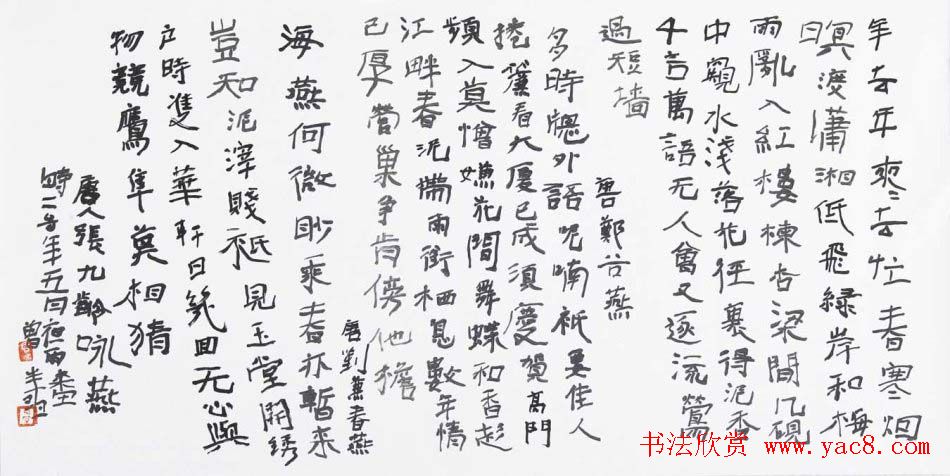 年去年來々去忙春寒烟
暝渡瀟湘低飛緑岸和梅
雨亂入紅樓揀杏梁間几硯
中窺水淺落花徑裏得泥香
千言萬語无人會又逐流鶯
過短墻
唐鄭谷燕
多時牕外語呢喃祇要佳人
捲簾看大廈已成須慶賀高門
頻入莫憎嫌花間舞蝶和香趁
江畔春泥帶雨銜栖息數年情
已厚營巢爭肯傍他檐
唐劉兼春燕
海燕何微眇乘春亦暫來
豈知泥滓賤祇見玉堂開綉
户時雙入華軒日幾回无心與
物競鷹隼莫相猜
唐人張九齡咏燕
年五月夜雨
曾
书法欣赏 www.yac8.com